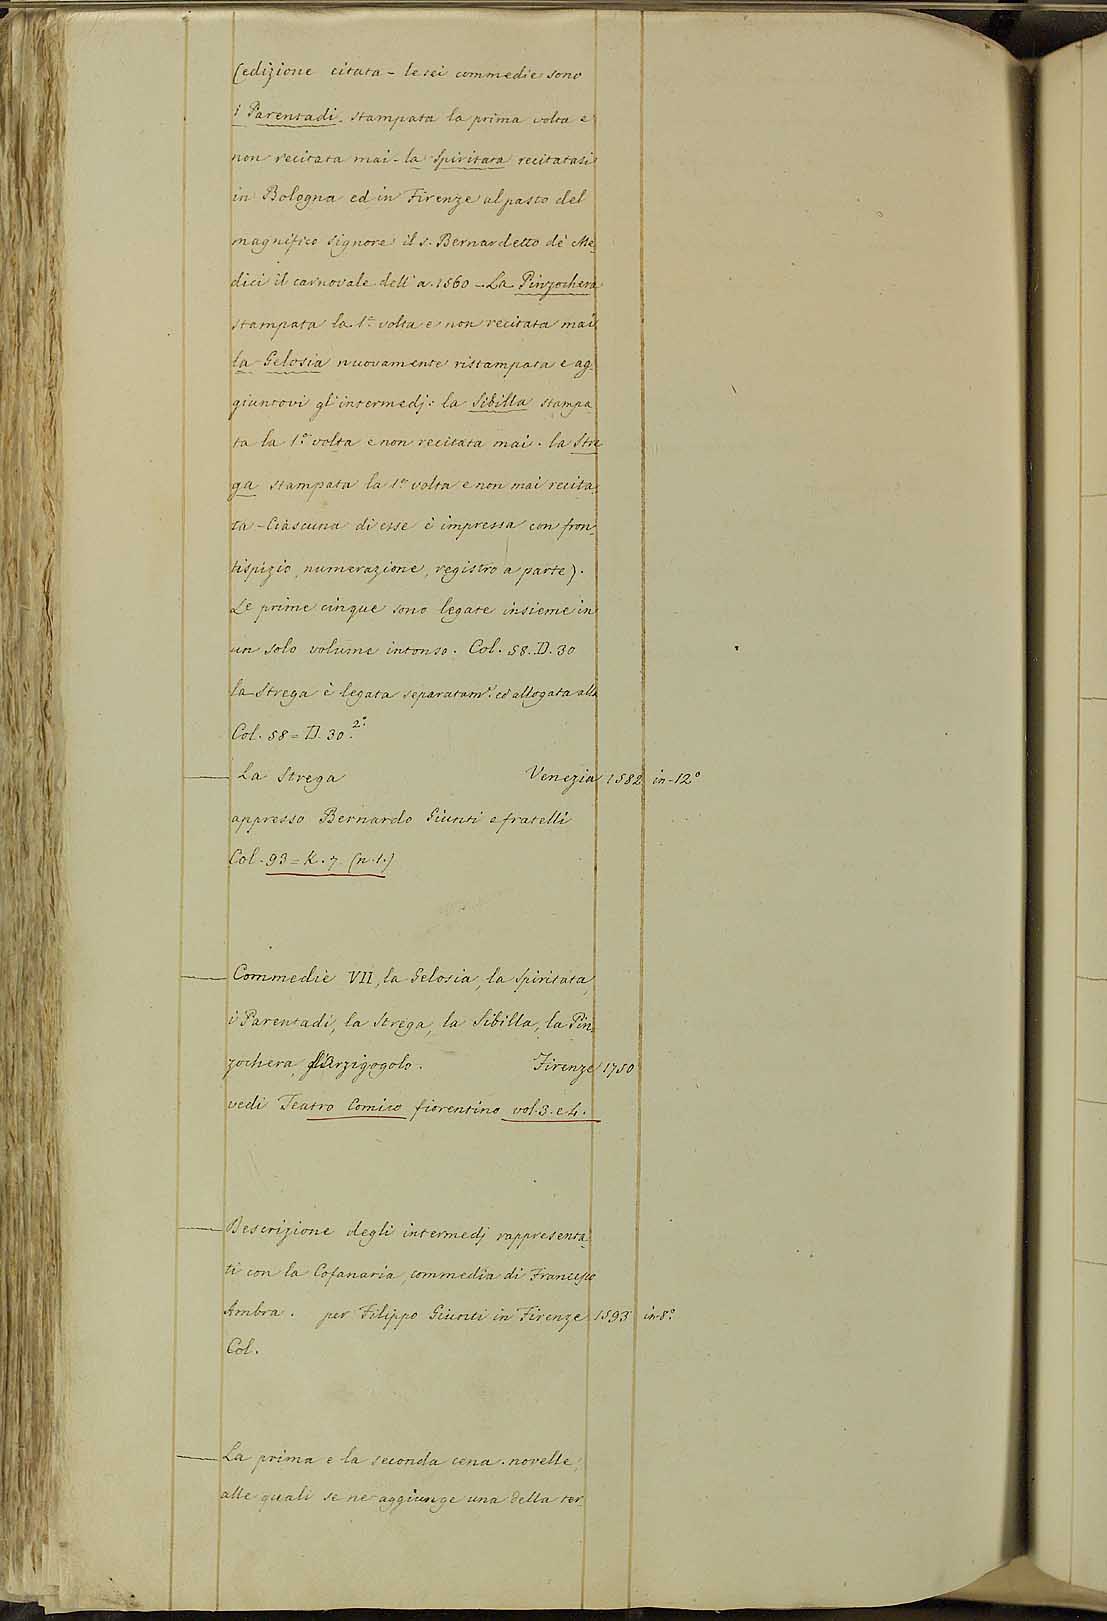 (edizione citata - le sei commedie sono
i Parentadi. stampata la prima volta e
non recitata mai - la Spiritata recitatasi
in Bologna ed in Firenze al pasto del
magnifico signore il s. Bernardetto de' Me-
dici il carnovale dell'a. 1560 - La Pinzochera
stampata la 1ª volta e non recitata mai
la Gelosia nuovamente ristampata e ag-
giuntovi gl'intermedj: la Sibilla stampa
ta la 1ª volta e non recitata mai. la Stre
ga stampata la 1ª volta e non mai recita-
ta - Ciascuna di esse è impressa con fron-
tispizio, numerazione, registro a parte).
Le prime cinque sono legate insieme in
un solo volume intonso. Col. 58. D. 30
la Strega è legata separatam.e ed allogata alla
Col. 58 = D. 30. 2°
La Strega Venezia 1582 in-12°
appresso Bernardo Giunti e fratelli
Col. 93 = K. 7 (n. 1.)
Commedie VII, la Gelosia, la Spiritata,
i Parentadi, la Strega, la Sibilla, la Pin-
zochera, l'Arzigogolo. Firenze 1750
vedi Teatro Comico fiorentino vol. 3. e 4.
Descrizione degli intermedj rappresenta-
ti con la Cofanaria, commedia di Francesco
Ambra. per Filippo Giunti in Firenze 1593 in 8°
Col.
La prima e la seconda cena. novelle,
alle quali se ne aggiunge una della ter-